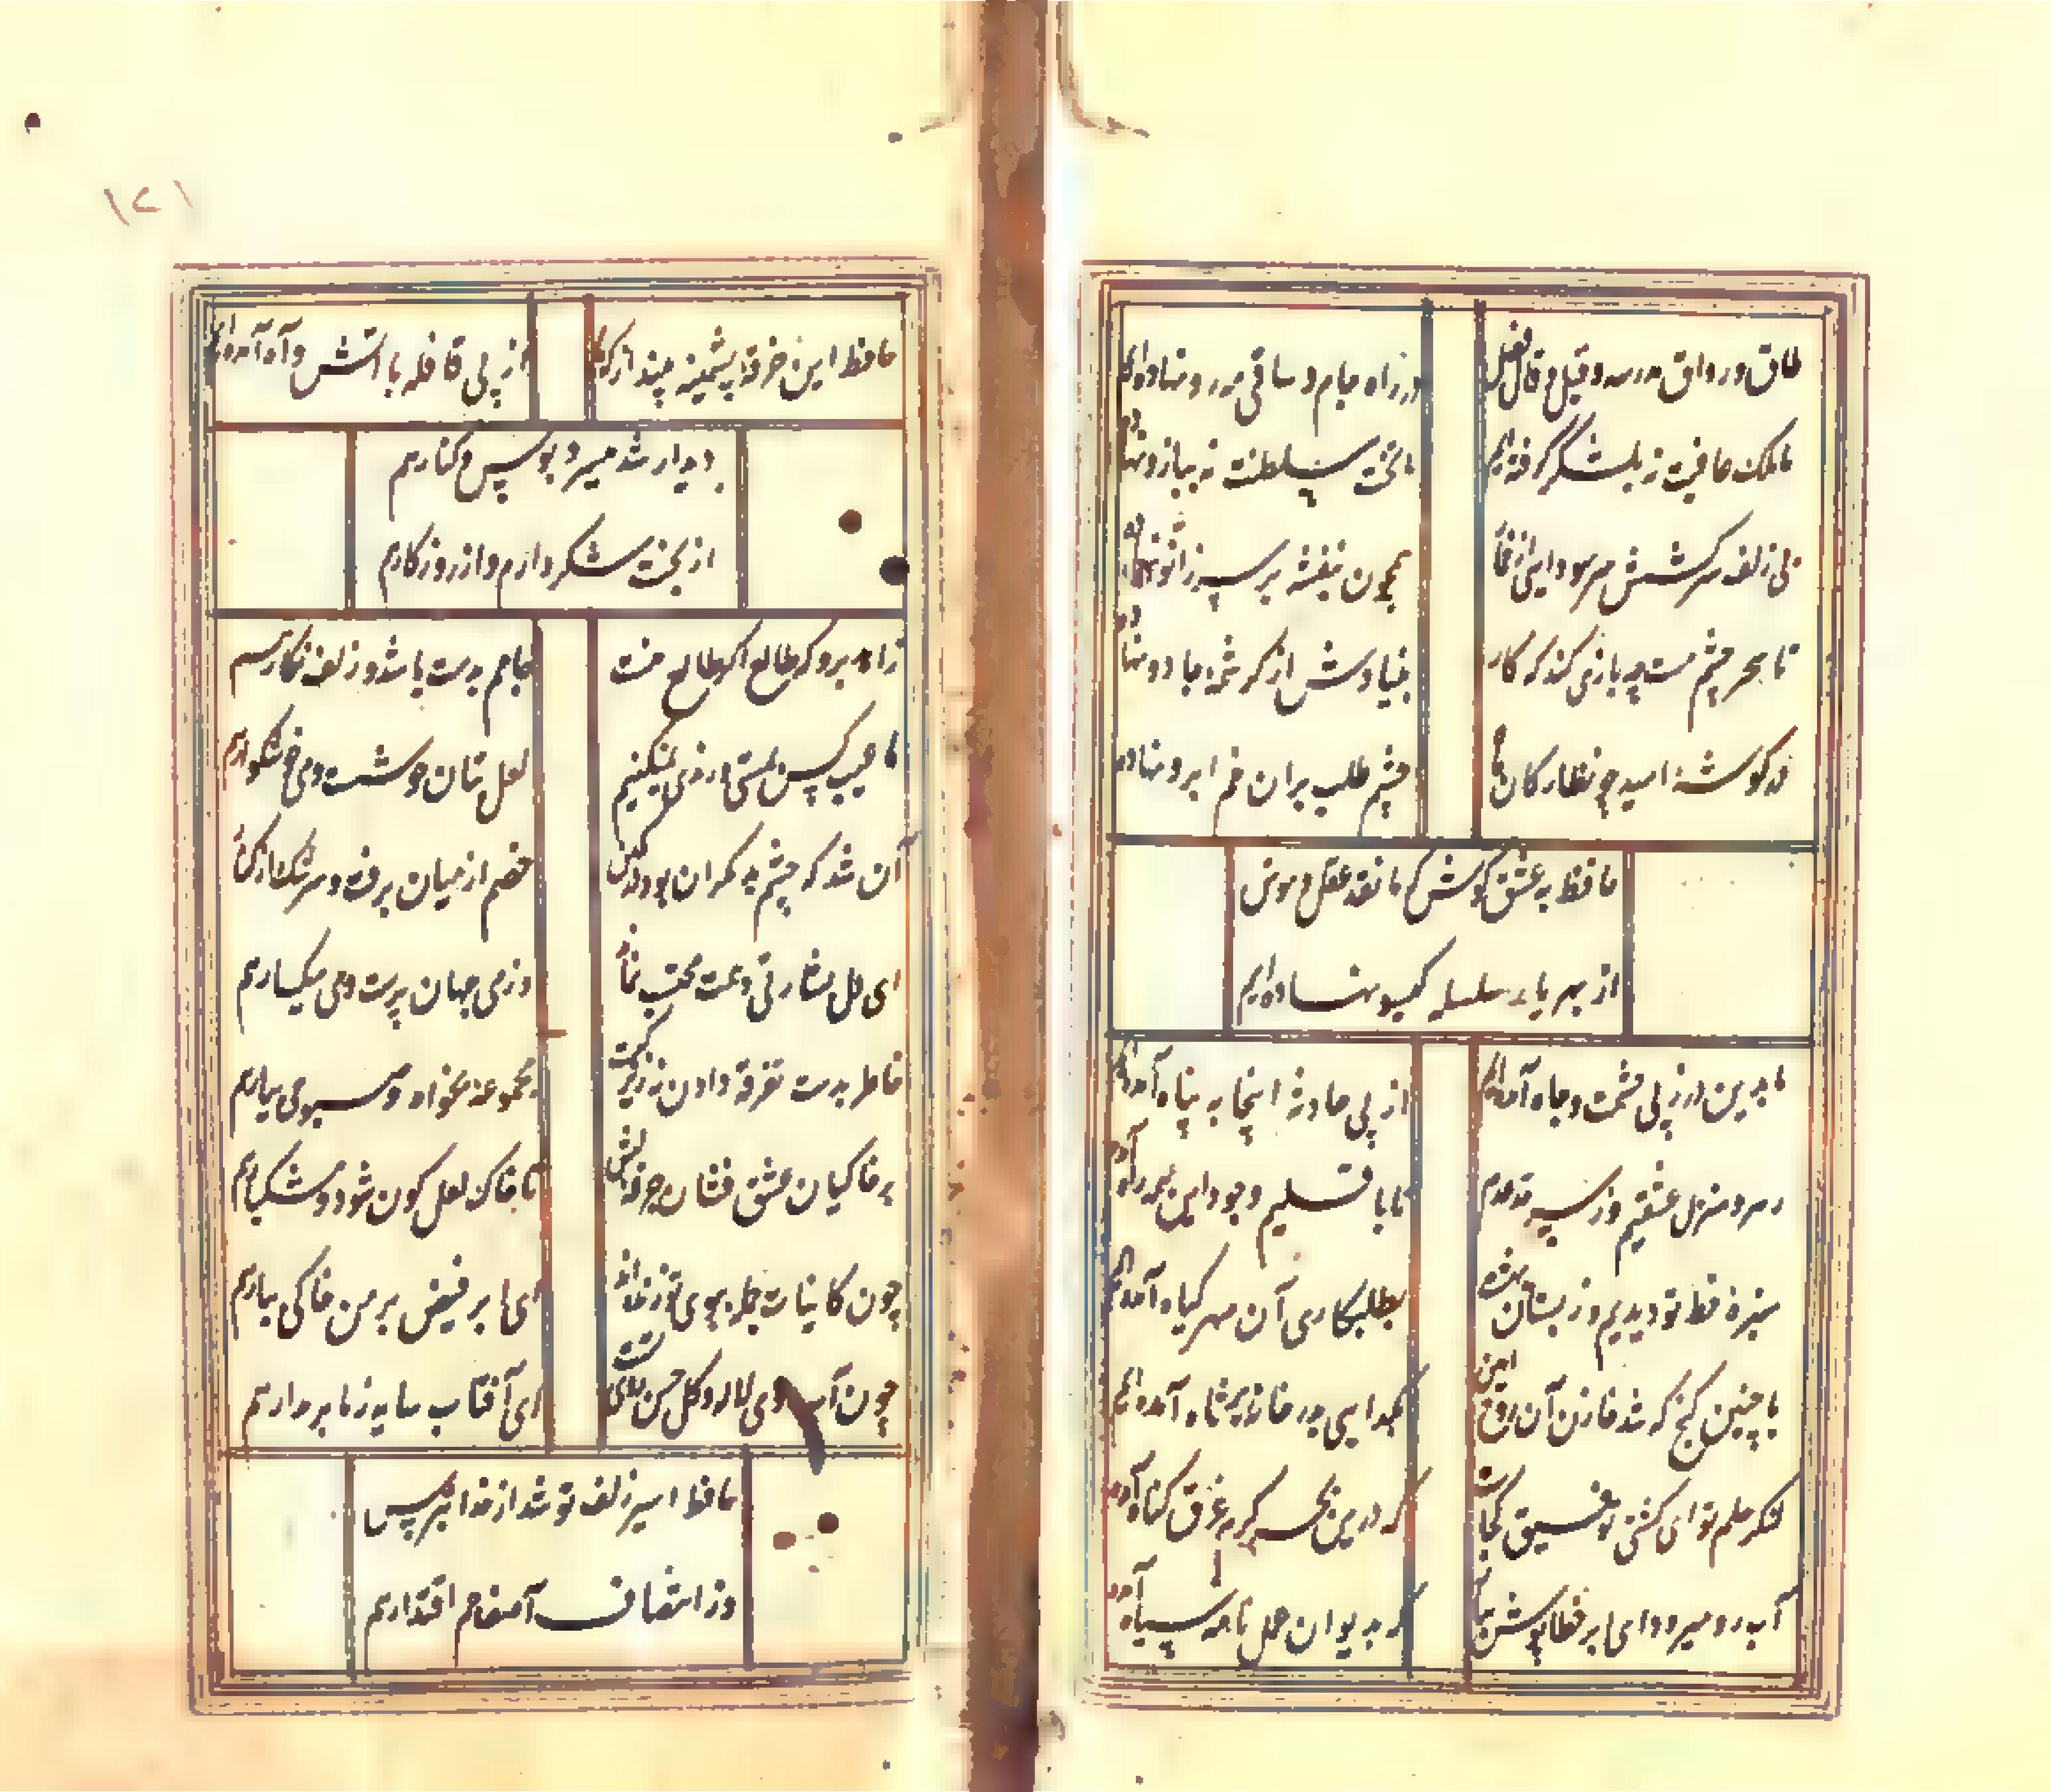 طاق و رواق مدرسه و قیل و قال فضل
در راه جام و ساقی مه رو نهاده‌ایم
ما ملک عافیت نه بلشگر گرفته‌ایم
ما تخت سلطنت نه ببازو نهاده
بی زلف سرکشش سر سودایی از
همچون بنفشه بر سر زانو نهاده
تا سحر چشم مست چه بازی کند که کار
بنیادش از کرشمه جادو نهاده
در گوشه امید چو نظارگان ماه
چشم طلب بران خم ابرو نهاده
حافظ به عشق کوش که ما نقد عقل و هوش
از بهر یار سلسله گیسو نهاده‌ایم
ما بدین در نه پی حشمت و جاه آمده‌ایم
از پی حادثه اینجا به پناه آمده‌ایم
رهرو منزل عشقیم و ز سر حد عدم
تا باقلیم وجود این همه راه آمده
سبزه خط تو دیدیم و ز بستان بهشت
بطلبکاری آن مهر گیاه آمده‌ایم
با چنین گنج که شد خازن آن روح امین
بگدایی بدر خانه شاه آمده‌ایم
لنگر حلم تو ای کشتی توفیق کجاست
که درین بحر کرم غرق گناه آمده
آب رو میرود ای ابر خطاپوش ببار
که بدیوان عمل نامه سیاه آمده
۱۲۱
حافظ این خرقه پشمینه بینداز که ما
از پی قافله با آتش و آه آمده‌ایم
دیدار شد میسر و بوس و کنار هم
از بخت شکر دارم و از روزگار هم
زاهد برو که طالع اگر طالع منست
جامم بدست باشد و زلف نگار هم
ما عیب کس بمستی و رندی نمیکنیم
لعل بتان خوشست و می خوشگوار هم
آن شد که چشم بد نگران بودی از کمین
خصم از میان برفت و سرشک از کنار
ای دل بشارتی دهمت محتسب نماند
وز می جهان پرست و می میگسار هم
خاطر بدست تفرقه دادن نه زیرکیست
مجموعه بخواه و سبوی بیار هم
بر خاکیان عشق فشان جرعه لبش
تا خاک لعل گون شود و مشکبار هم
چون کاینات جمله ببوی تو زنده‌اند
ای ابر فیض بر من خاکی ببار هم
چون آب روی لاله و گل حسن
ای آفتاب سایه ز ما بر مدار هم
حافظ اسیر زلف تو شد از خدا بترس
وز انتصاف آصف جم اقتدار هم